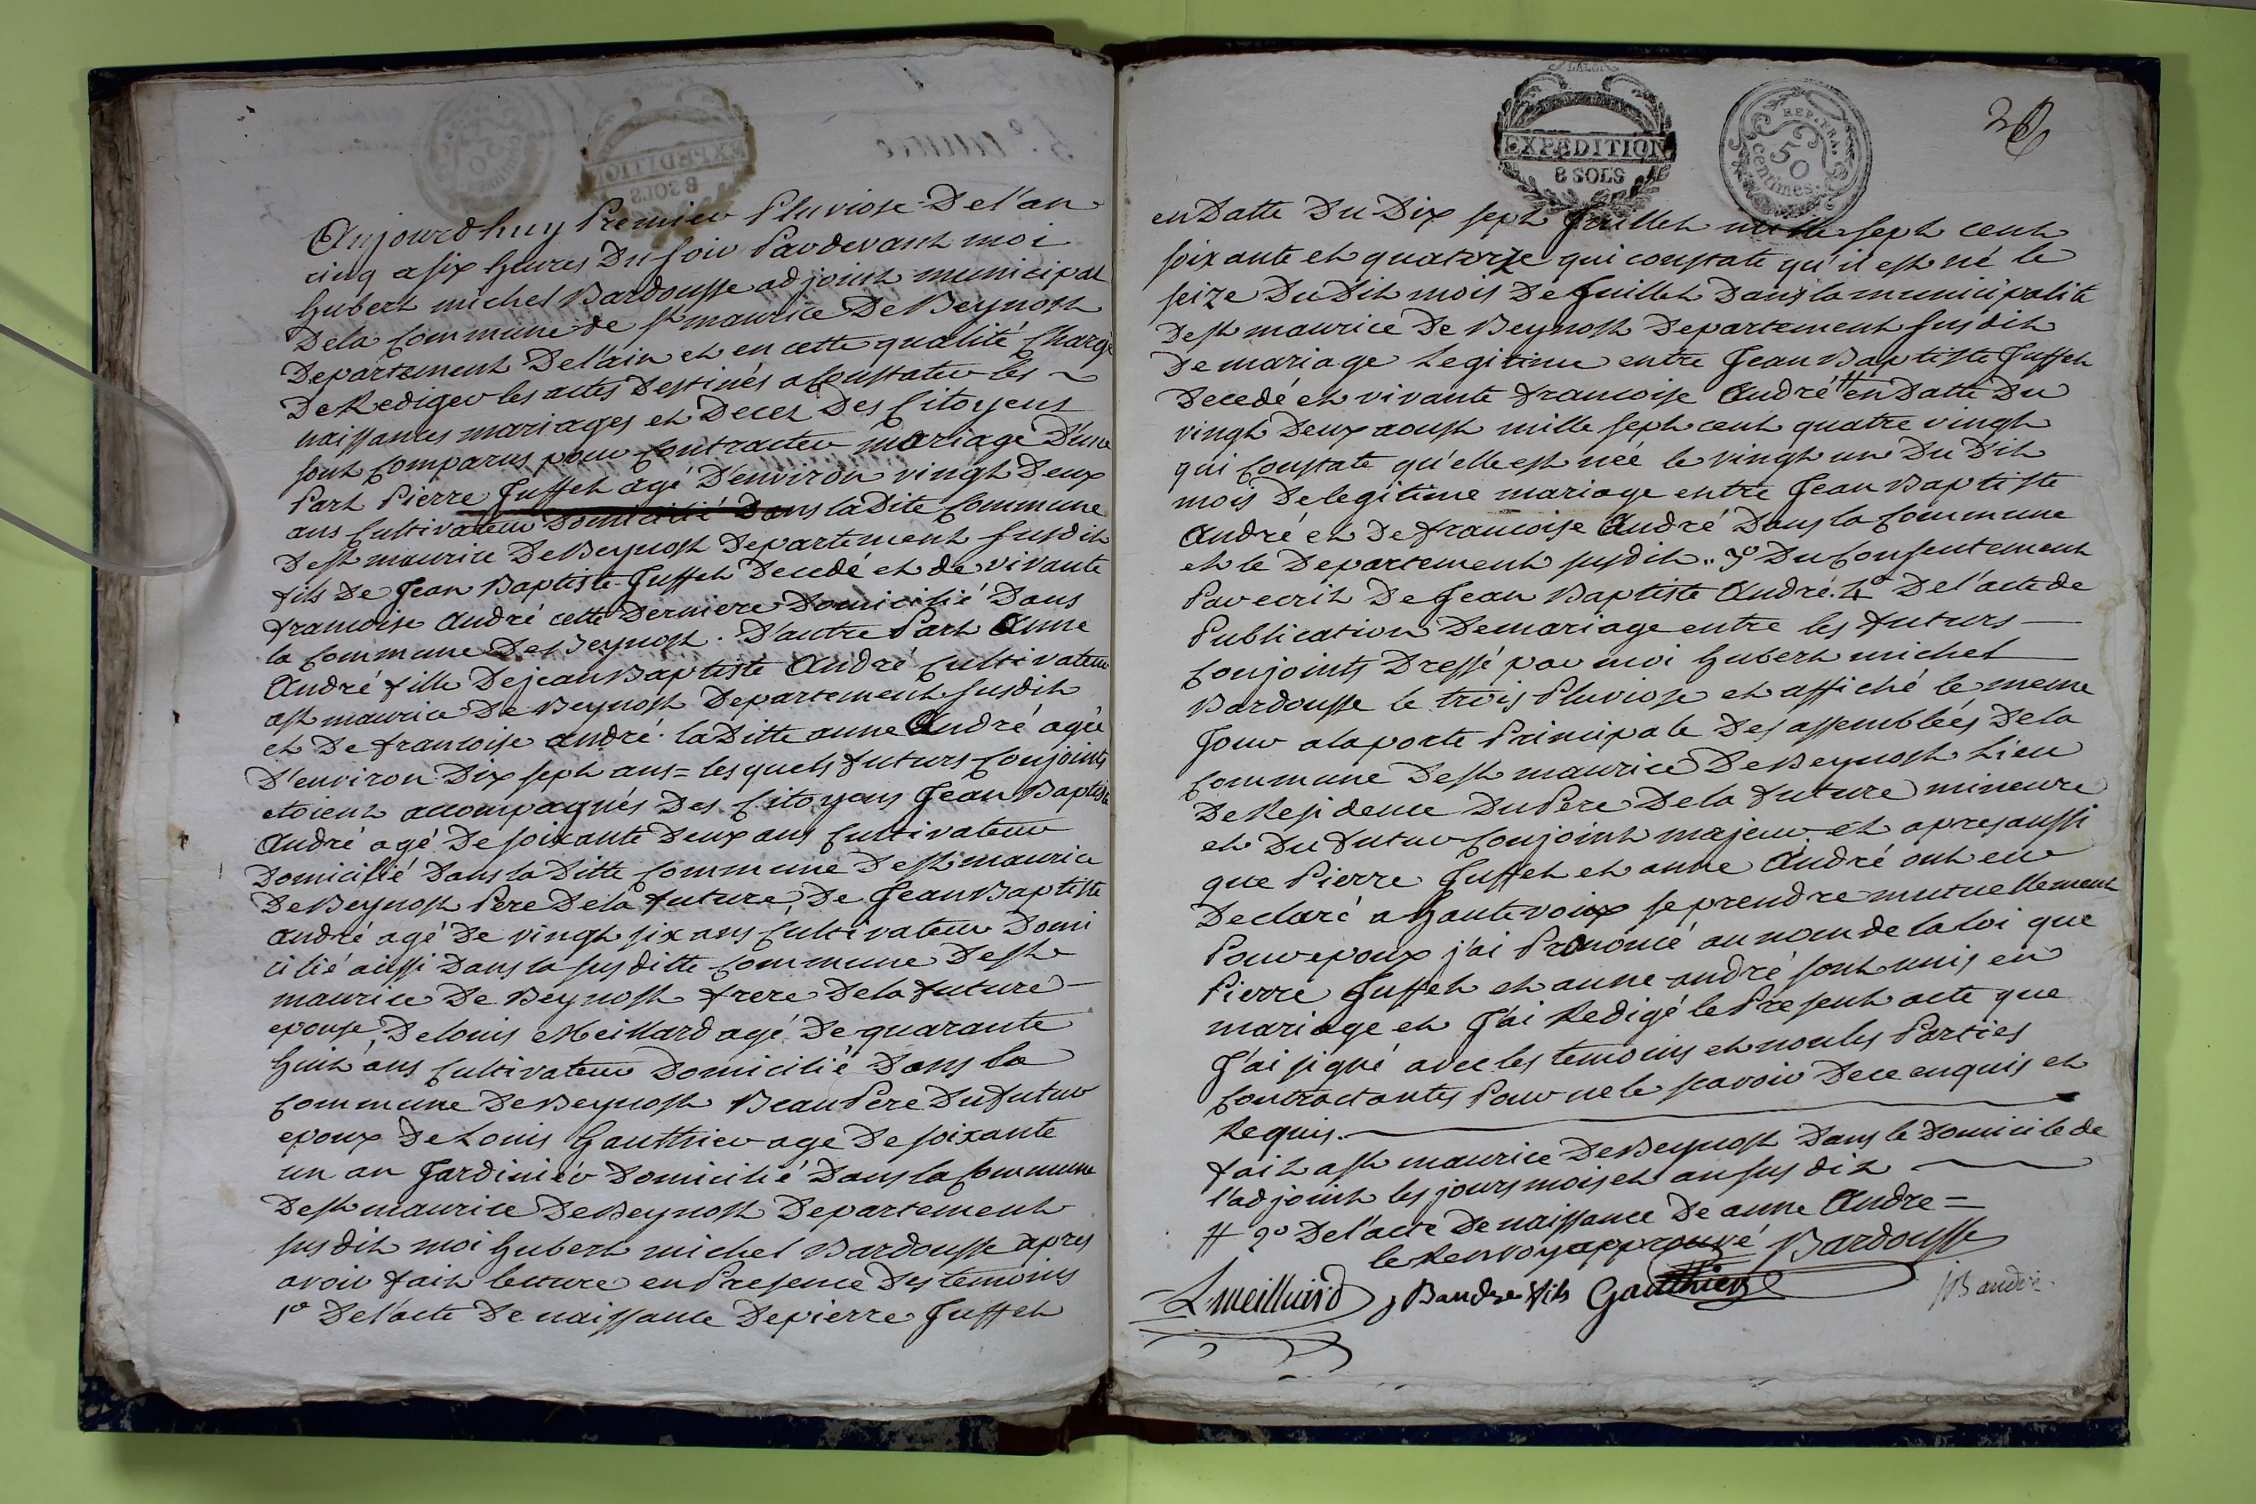 Aujourdhuy Premier Pluviose De l'an
cinq a six heures Du soir Pardevant moi
hubert michel Bardousse adjoint municipal
Dela Commune de st maurice De Beynost
Departement Del'ain et en cette qualité Chargé
De Rediger les actes Destinés a Constater les
naissances mariages et Deces Des Citoyens
sont Comparus pour Contracter mariage D'une
Part Pierre Juffet agé D'environ vingt Deux
ans Cultivateur Domicilié Dans la Dite Commune
De st maurice De Beynost Departement susdit
fils De Jean Baptiste Juffet Decedé et de vivante
francoise André cette Derniere Domicilié Dans
la Commune De Beynost. D'autre Part Anne
André fille De jean Baptiste André Cultivateur
a st maurice De Beynost Departement susdit
et De francoise André. la Ditte anne André agée
D'environ Dix sept ans = lesquels futurs Conjoints
etoient accompagnés Des Citoyens Jean Baptiste
André agé De soixante Deux ans Cultivateur
Domicilié Dans la Ditte Commune De st maurice
De Beynost Pere Dela future, De Jean Baptiste
André agé De vingt six ans Cultivateur Domi
cilié aussi Dans la susditte Commune De st
maurice De Beynost frere Dela future
epouse, De louis Meillard agé De quarante
huit ans Cultivateur Domicilié Dans la
Commune De Beynost Beau Pere Du futur
epoux De Louis Gauthier age De soixante
un an Jardinier Domicilié Dans la Commune
De st maurice De Beynost Departement
susdit moi hubert michel Bardousse apres
avoir fait lecture en Presence Des temoins
1o Del'acte De naissance De pierre Juffet
EXPEDITION
8 SOLS
REP. FRA.
50
centimes
en Datte Du Dix sept Juillet mille sept cent
soixante et quatorze qui constate qu'il est né le
seize Du Dit mois De Juillet Dans la municipalité
De st maurice De Beynost Departement susdit
De mariage Legitime entre Jean Baptiste Juffet
Decedé et vivante francoise André # en Datte Du
vingt Deux aoust mille sept cent quatre vingt
qui Constate qu'elle est née le vingt un Du Dit
mois De legitime mariage entre Jean Baptiste
André et De francoise André Dans la Commune
et le Departement susdit .. 3o Du Consentement
Par ecrit De Jean Baptiste André. 4o De l'acte de
Publication De mariage entre les futurs
Conjoints Dressé par moi hubert michel
Bardousse le trois Pluviose et affiché le meme
Jour a la porte Principale Des assemblées Dela
Commune De st maurice De Beynost Lieu
De Residence Du Pere De la future mineure
et Du futur Conjoint majeur et apres aussi
que Pierre Juffet et anne André ont eu
Declaré a haute voix se prendre mutuellement
Pour epoux j'ai Prononcé au nom de la loi que
Pierre Juffet et anne andré sont unis en
mariage et J'ai Redigé le Present acte que
J'ai signé avec les temoins et non les Parties
Contractantes Pour ne le scavoir De ce enquis et
Requis.
fait a st maurice De Beynost Dans le Domicile de
l'adjoint les jours mois et an susdit
# 2o De l'acte De naissance De anne Andre =
le Renvoy approuvé Bardousse
L meillard j Bandre fils Gauthier jB andré